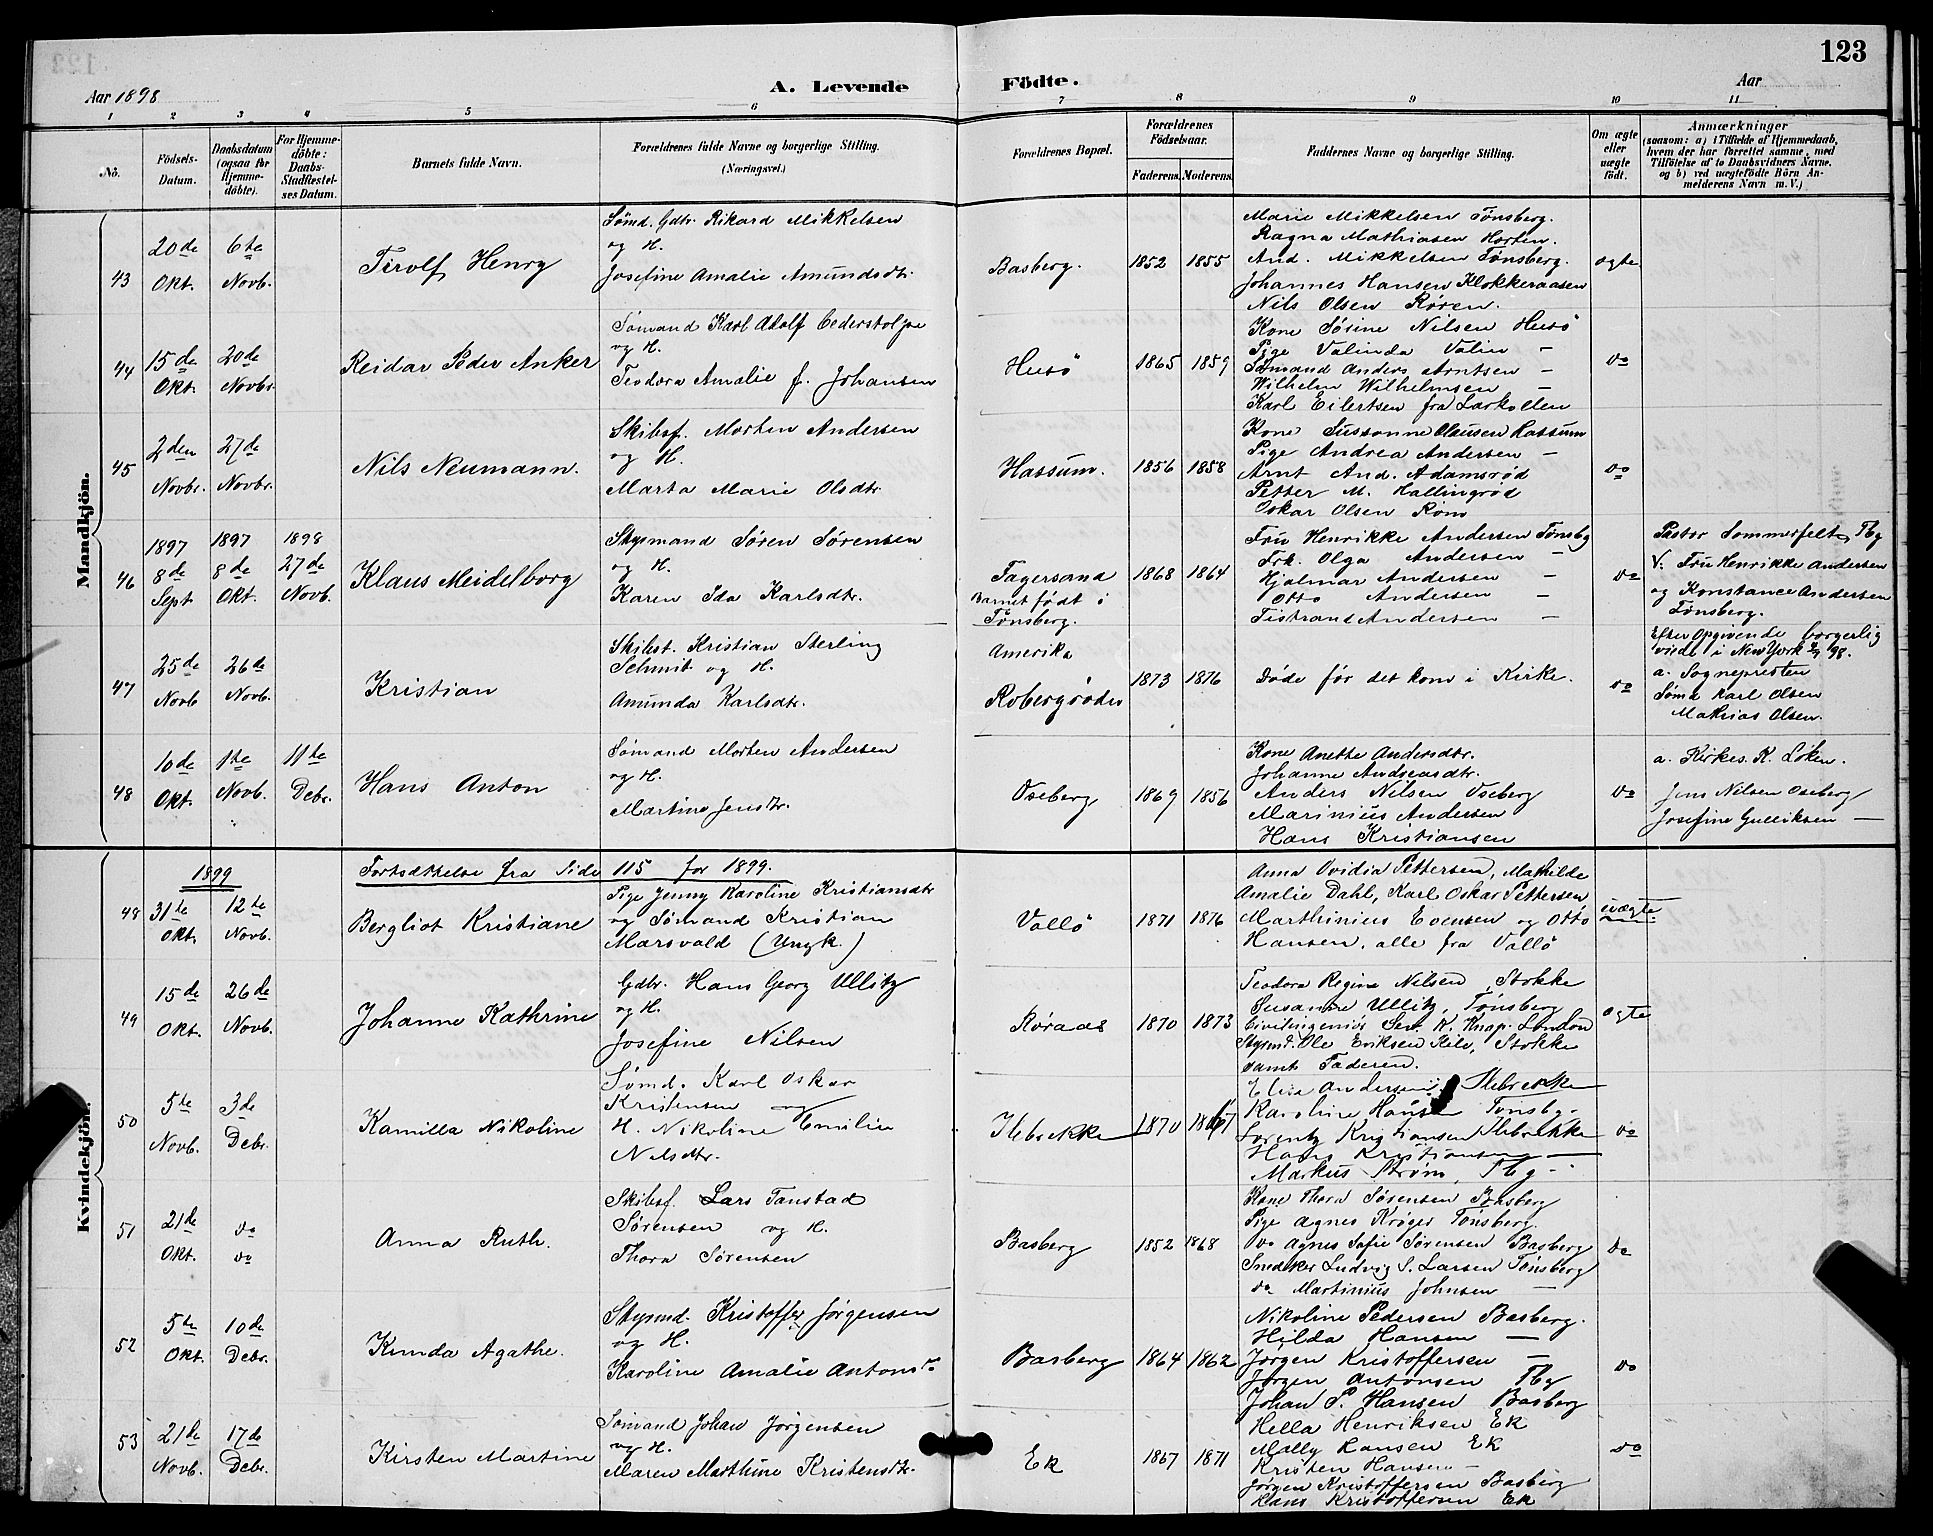 123
Aar 1898
A. Levende Födte.
Aar
1 2 3 4 5 6 7 8 9 10 11
No.
Födsels-Datum.
Daabsdatum (ogsaa for Hjemmedöbte).
For Hjemmedöbte: Daabs-Stadfestelses Datum.
Barnets fulde Navn.
Forældrenes fulde Navne og borgerlige Stilling. (Næringsvei.)
Forældrenes Bopæl.
Forældrenes Födselsaar.
Faderens. Moderens.
Faddernes Navne og borgerlige Stilling.
Om ægte eller uægte födt.
Anmærkninger
(saasom: a) i Tilfælde af Hjemmedaab, hvem der har forrettet samme, med Tilföielse af to Daabsvidners Navne, og b) ved uægtefödte Börn Anmelderens Navn m. V.)
Mandkjön.
43
20de Okt.
6te Novb.
Tirolf Henry
Sømd. Gdbr. Rikard Mikkelsen
og H.
Josefine Amalie Amundsdtr.
Basberg.
1852 1855
Marie Mikkelsen Tønsberg.
Ragna Mathiasen Horten.
And. Mikkelsen Tønsberg.
Johannes Hansen Klokkeraasen
Nils Olsen Røren.
ægte
44
15de Okt.
20de Novbr.
Reidar Peder Anker
Sømand Karl Adolf Cederstolpe
og H.
Teodora Amalie f. Johansen
Husö
1865 1859
Kone Søsine Nilsen Husö
Pige Valinda Valin —
Sømand Anders Arntsen —
Wilhelm Wilhelmsen —
Karl Eilertsen fra Larkollen
do
45
2den Novbr.
27de Novbr.
Nils Neumann.
Skibsf. Morten Andersen
og H.
Marta Marie Olsdtr.
Hassum.
1856 1858
Kone Sussanne Olausen Hassum
Pige Andrea Andersen —
Arnt And. Adamsrød
Petter M. Hallingrød
Oskar Olsen Rom
do
46
1897 8de Sept
1897 8de Okt.
1898 27de Novb.
Klaus Meidelborg
Stysmand Søren Sørensen
og H.
Karen Ida Karlsdtr.
Fagersand
Barnet født i
Tønsberg.
1868 1864
Fru Henrikke Andersen Tønsbg
Frk. Olga Andersen —
Hjalmar Andersen —
Otto Andersen —
Tistrand Andersen —
do
Pastor Sommerfelt, Tbg
V. Fru Henrikke Andersen
og Konstance Andersen
Tønsberg.
47
25de Novb
26de Novb.
Kristian
Skibst. Kristian Sterling
Schmit og H.
Amunda Karlsdtr.
Amerika
Robergrødn
1873 1876
Døde før det kom i Kirke.
do
Efter Opgivende borgerlig
viede i New York 98.
a. Sognepresten
Sømd Karl Olsen
Mathias Olsen.
48
10de Okt.
1te Novb.
11te Debr.
Hans Anton
Sømand Morten Andersen
og H.
Martine Jensdtr.
Oseberg
1869 1856
Kone Anette Andersdtr.
Johanne Andreasdtr.
Anders Nilsen Oseberg
Marinius Andersen
Hans Kristiansen
do
a. Kirkes. K. Löken.
Jens Nilsen Oseberg
Josefine Gulliksen —
Kvindekjön.
1899
Fortsættelse fra Side 115 for 1899.
48
31te Okt.
12te Novb.
Bergliot Kristiane
Pige Jenny Karoline Kristiansdtr
og Sømand Kristian
Marsvald (Ungk.)
Vallö
1871 1876
Anna Ovidia Pettersen, Mathilde
Amalie Dahl, Karl Oskar Pettersen,
Marthinius Evensen og Otto
Hansen, alle fra Vallö
uægte
49
15de Okt.
26de Novb.
Johanne Kathrine
Gdbr. Hans Georg Ullitz
og H.
Josefine Nilsen
Røraas
1870 1873
Teodora Regine Nilsen, Stokke
Susanne Ullitz, Tønsberg
Civilingeniör Sev. K. Knap. London
Stysmd. Ole Eriksen Kile, Stokke
samt Faderen.
ægte
50
5te Novb.
3de Debr.
Kamilla Nikoline
Sømd. Karl Oskar
Kristensen og
H. Nikoline Emilie
Nilsdtr.
Ilebrekke
1870 1867
Elise Andersen, Ilebrekke
Karoline Hansen Tønsbg.
Lorentz Kristiansen Ilebrekke
Hans Kristiansen —
Markus Strøm, Tbg.
do
51
21de Okt.
do do
Anna Ruth.
Skibsf. Lars Tanstad
Sørensen og H.
Thora Sørensen
Basberg
1852 1868
Kone Thora Sørensen Basberg
Pige Agnes Krøger Tønsberg.
do Agnes Sofie Sørensen Basberg
Snedker Ludvig S. Larsen Tønsberg
do Martinius Johnsen —
do
52
5te Okt.
10de Debr.
Kunda Agathe.
Stysmd. Kristoffer Jørgensen
og H.
Karoline Amalie Antonsdr.
Basberg
1864 1862
Nikoline Pedersen Basberg.
Hilda Hansen —
Jørgen Kristoffersen —
Jørgen Antonsen Tbg
Johan P. Hansen Basberg
do
53
21de Novb.
17de Debr.
Kirsten Martine
Sømand Johan Jørgensen
og H.
Maren Marthine Kristensdtr.
Ek
1867 1871
Hella Henriksen Ek
Mally Hansen Ek
Kristen Hansen —
Jørgen Kristoffersen Basberg
Hans Kristoffersen Ek
do